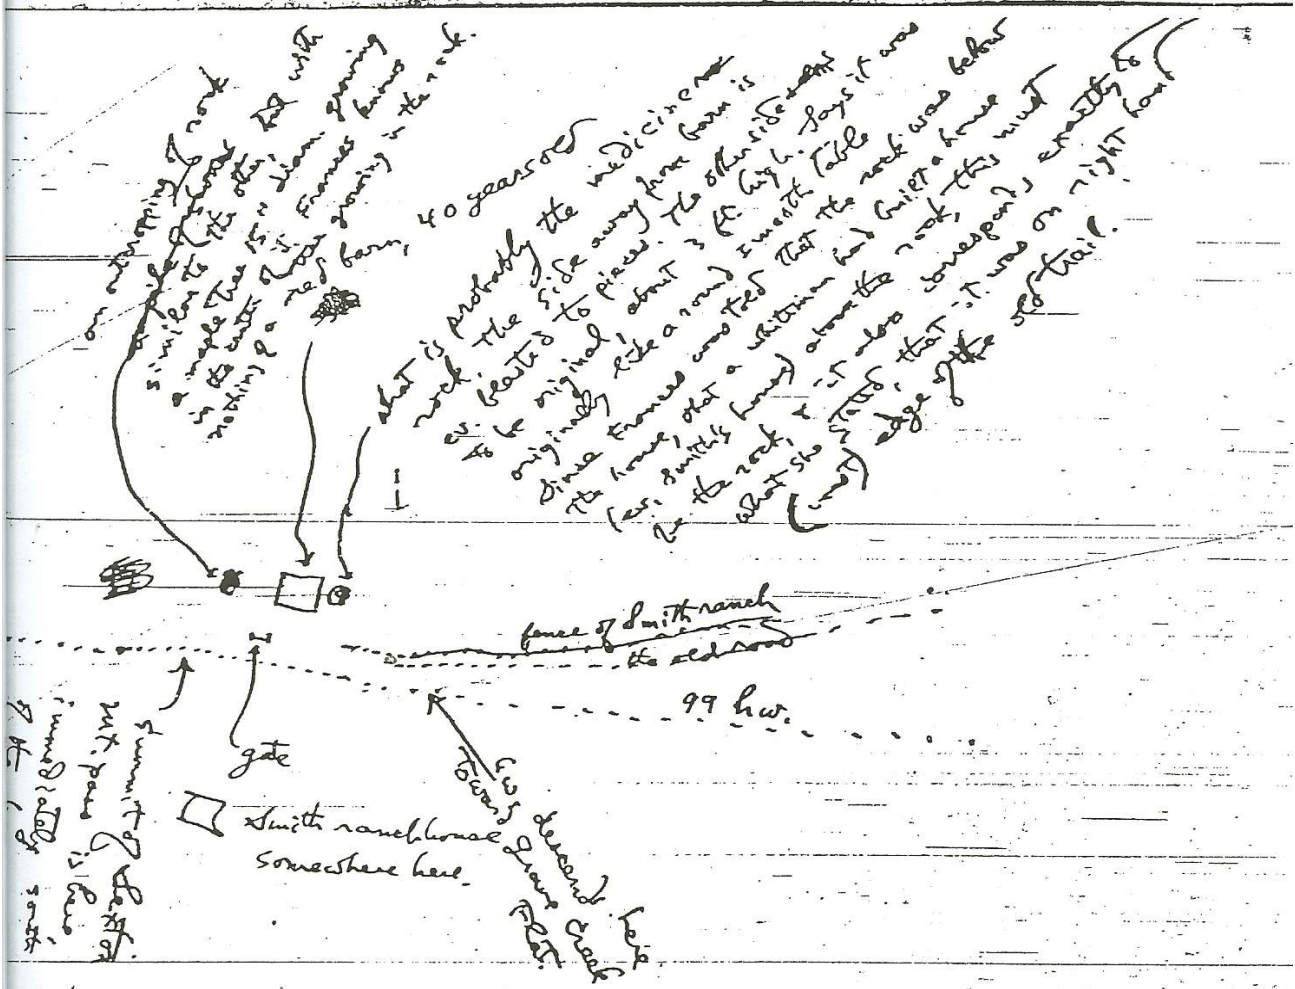 an outcropping of rock
similar to the other, but with
a maple tree 1½ ft. diam. growing
nothing growing in the rock.
a red barn, 40 years old
what is probably the medicine
rock. The side away from barn is
ev. blasted to pieces. The other side
to be original, about 3 ft. high. Says it was
originally like a round 1 meter table
Since Frances was told that the rock was below
the house, that a whiteman had built a house
(ev. Smith's house) above the rock, this must
be the rock, & it also corresponds exactly to
what she stated, that it was on right hand
(west) edge of the old trail.
fence of Smith ranch
the old road
99 hw.
gate
Smith ranchhouse
somewhere here.
hwy descends here
toward Grave Creek
flat.
summit of
mt. pass is here
immediately south